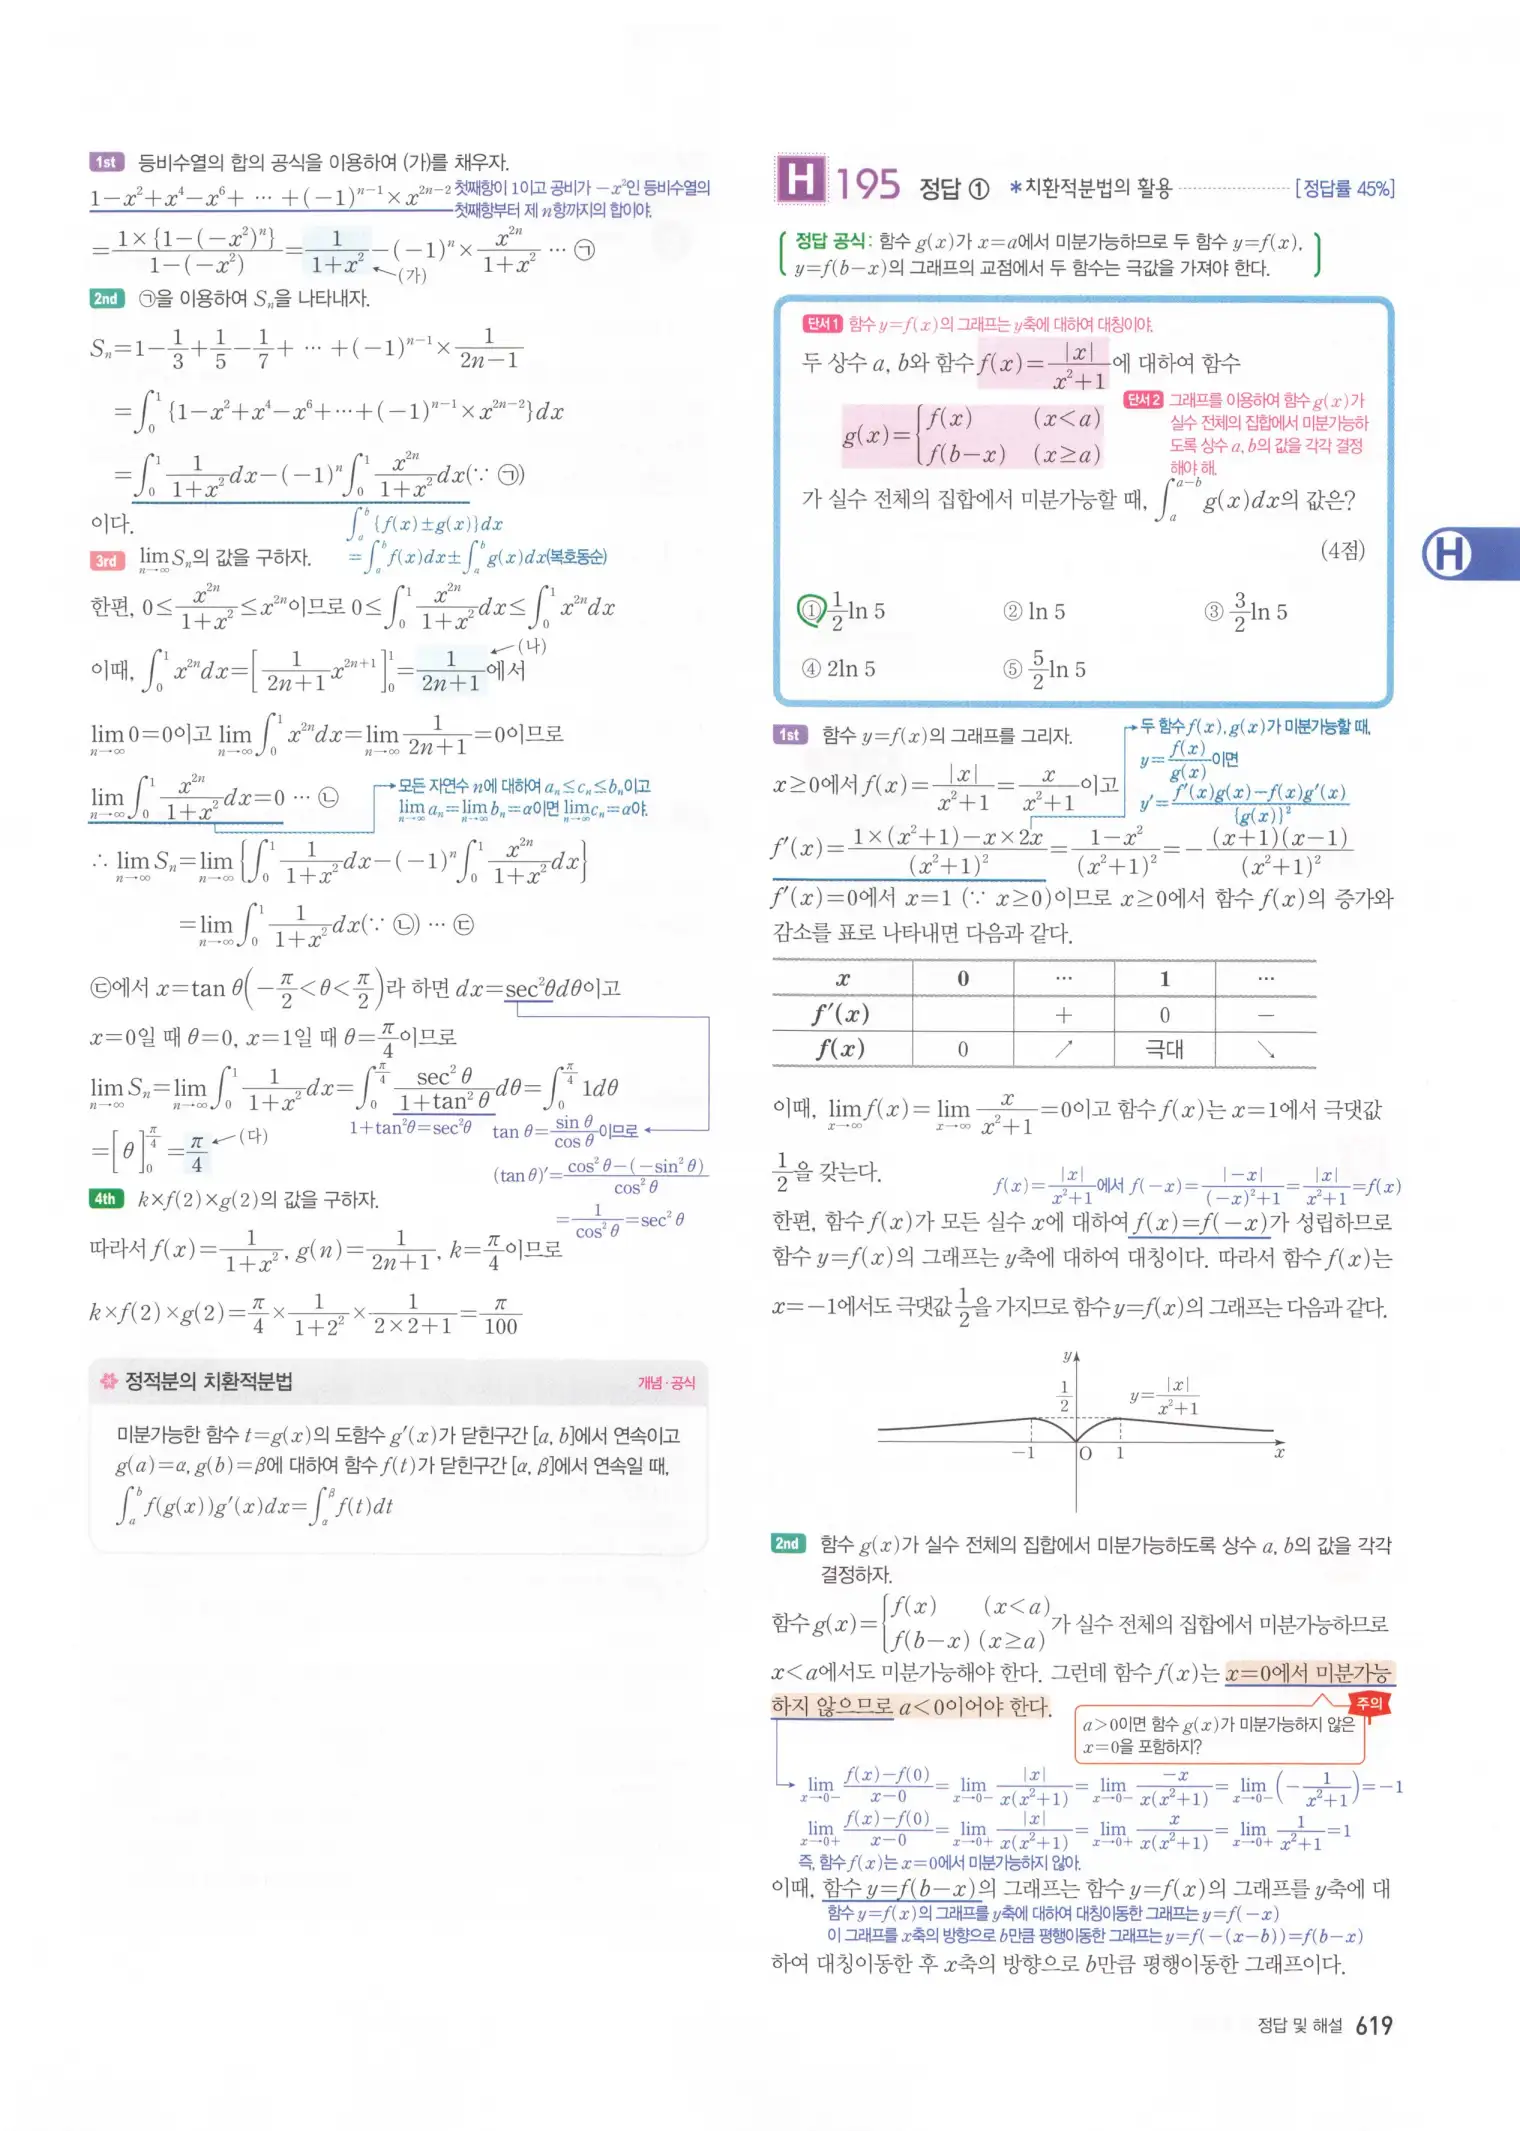 1st 등비수열의 합의 공식을 이용하여 (가)를 채우자.
1−x²+x⁴−x⁶+ ⋯ +(−1)ⁿ⁻¹×x²ⁿ⁻² 첫째항이 1이고 공비가 −x²인 등비수열의
첫째항부터 제 n항까지의 합이야.
=1×{1−(−x²)ⁿ}/1−(−x²)=1/1+x²−(−1)ⁿ×x²ⁿ/1+x² ⋯ ㉠
(가)
2nd ㉠을 이용하여 Sₙ을 나타내자.
Sₙ=1−1/3+1/5−1/7+ ⋯ +(−1)ⁿ⁻¹×1/2n−1
=∫₀¹{1−x²+x⁴−x⁶+⋯+(−1)ⁿ⁻¹×x²ⁿ⁻²}dx
=∫₀¹ 1/1+x² dx−(−1)ⁿ∫₀¹ x²ⁿ/1+x² dx(∵ ㉠)
이다. ∫ₐᵇ{f(x)±g(x)}dx
3rd lim n→∞ Sₙ의 값을 구하자. =∫ₐᵇf(x)dx±∫ₐᵇg(x)dx(복호동순)
한편, 0≤x²ⁿ/1+x²≤x²ⁿ이므로 0≤∫₀¹ x²ⁿ/1+x² dx≤∫₀¹x²ⁿdx
(나)
이때, ∫₀¹x²ⁿdx=[1/2n+1 x²ⁿ⁺¹]₀¹=1/2n+1에서
lim n→∞ 0=0이고 lim n→∞ ∫₀¹x²ⁿdx=lim n→∞ 1/2n+1=0이므로
lim n→∞ ∫₀¹ x²ⁿ/1+x² dx=0 ⋯ ㉡
모든 자연수 n에 대하여 aₙ≤cₙ≤bₙ이고
lim n→∞ aₙ=lim n→∞ bₙ=α이면 lim n→∞ cₙ=α야.
∴ lim n→∞ Sₙ=lim n→∞ {∫₀¹ 1/1+x² dx−(−1)ⁿ∫₀¹ x²ⁿ/1+x² dx}
=lim n→∞ ∫₀¹ 1/1+x² dx(∵ ㉡) ⋯ ㉢
㉢에서 x=tan θ(−π/2<θ<π/2)라 하면 dx=sec²θdθ이고
x=0일 때 θ=0, x=1일 때 θ=π/4이므로
lim n→∞ Sₙ=lim n→∞ ∫₀¹ 1/1+x² dx=∫₀^(π/4) sec²θ/1+tan²θ dθ=∫₀^(π/4) 1dθ
1+tan²θ=sec²θ tan θ=sin θ/cos θ이므로
=[θ]₀^(π/4)=π/4 (다)
(tan θ)′=cos²θ−(−sin²θ)/cos²θ
=1/cos²θ=sec²θ
4th k×f(2)×g(2)의 값을 구하자.
따라서 f(x)=1/1+x², g(n)=1/2n+1, k=π/4이므로
k×f(2)×g(2)=π/4×1/1+2²×1/2×2+1=π/100
정적분의 치환적분법 개념·공식
미분가능한 함수 t=g(x)의 도함수 g′(x)가 닫힌구간 [a, b]에서 연속이고
g(a)=α, g(b)=β에 대하여 함수 f(t)가 닫힌구간 [α, β]에서 연속일 때,
∫ₐᵇf(g(x))g′(x)dx=∫_α^β f(t)dt
H 195 정답 ① *치환적분법의 활용 [정답률 45%]
정답 공식: 함수 g(x)가 x=a에서 미분가능하므로 두 함수 y=f(x),
y=f(b−x)의 그래프의 교점에서 두 함수는 극값을 가져야 한다.
단서1 함수 y=f(x)의 그래프는 y축에 대하여 대칭이야.
두 상수 a, b와 함수 f(x)=|x|/x²+1에 대하여 함수
g(x)={f(x) (x<a)
f(b−x) (x≥a)
단서2 그래프를 이용하여 함수 g(x)가
실수 전체의 집합에서 미분가능하
도록 상수 a, b의 값을 각각 결정
해야 해.
가 실수 전체의 집합에서 미분가능할 때, ∫ₐ^(a−b) g(x)dx의 값은?
(4점)
① 1/2 ln 5 ② ln 5 ③ 3/2 ln 5
④ 2ln 5 ⑤ 5/2 ln 5
1st 함수 y=f(x)의 그래프를 그리자.
두 함수 f(x), g(x)가 미분가능할 때,
y=f(x)/g(x)이면
y′=f′(x)g(x)−f(x)g′(x)/{g(x)}²
x≥0에서 f(x)=|x|/x²+1=x/x²+1이고
f′(x)=1×(x²+1)−x×2x/(x²+1)²=1−x²/(x²+1)²=−(x+1)(x−1)/(x²+1)²
f′(x)=0에서 x=1 (∵ x≥0)이므로 x≥0에서 함수 f(x)의 증가와
감소를 표로 나타내면 다음과 같다.
x 0 ⋯ 1 ⋯
f′(x) + 0 −
f(x) 0 ↗ 극대 ↘
이때, lim x→∞ f(x)=lim x→∞ x/x²+1=0이고 함수 f(x)는 x=1에서 극댓값
1/2을 갖는다.
f(x)=|x|/x²+1에서 f(−x)=|−x|/(−x)²+1=|x|/x²+1=f(x)
한편, 함수 f(x)가 모든 실수 x에 대하여 f(x)=f(−x)가 성립하므로
함수 y=f(x)의 그래프는 y축에 대하여 대칭이다. 따라서 함수 f(x)는
x=−1에서도 극댓값 1/2을 가지므로 함수 y=f(x)의 그래프는 다음과 같다.
y
1/2
y=|x|/x²+1
−1 O 1 x
2nd 함수 g(x)가 실수 전체의 집합에서 미분가능하도록 상수 a, b의 값을 각각
결정하자.
함수 g(x)={f(x) (x<a)
f(b−x) (x≥a)가 실수 전체의 집합에서 미분가능하므로
x<a에서도 미분가능해야 한다. 그런데 함수 f(x)는 x=0에서 미분가능
하지 않으므로 a<0이어야 한다.
주의
a>0이면 함수 g(x)가 미분가능하지 않은
x=0을 포함하지?
lim x→0− f(x)−f(0)/x−0=lim x→0− |x|/x(x²+1)=lim x→0− −x/x(x²+1)=lim x→0− (−1/x²+1)=−1
lim x→0+ f(x)−f(0)/x−0=lim x→0+ |x|/x(x²+1)=lim x→0+ x/x(x²+1)=lim x→0+ 1/x²+1=1
즉, 함수 f(x)는 x=0에서 미분가능하지 않아.
이때, 함수 y=f(b−x)의 그래프는 함수 y=f(x)의 그래프를 y축에 대
함수 y=f(x)의 그래프를 y축에 대하여 대칭이동한 그래프는 y=f(−x)
이 그래프를 x축의 방향으로 b만큼 평행이동한 그래프는 y=f(−(x−b))=f(b−x)
하여 대칭이동한 후 x축의 방향으로 b만큼 평행이동한 그래프이다.
H
정답 및 해설 619